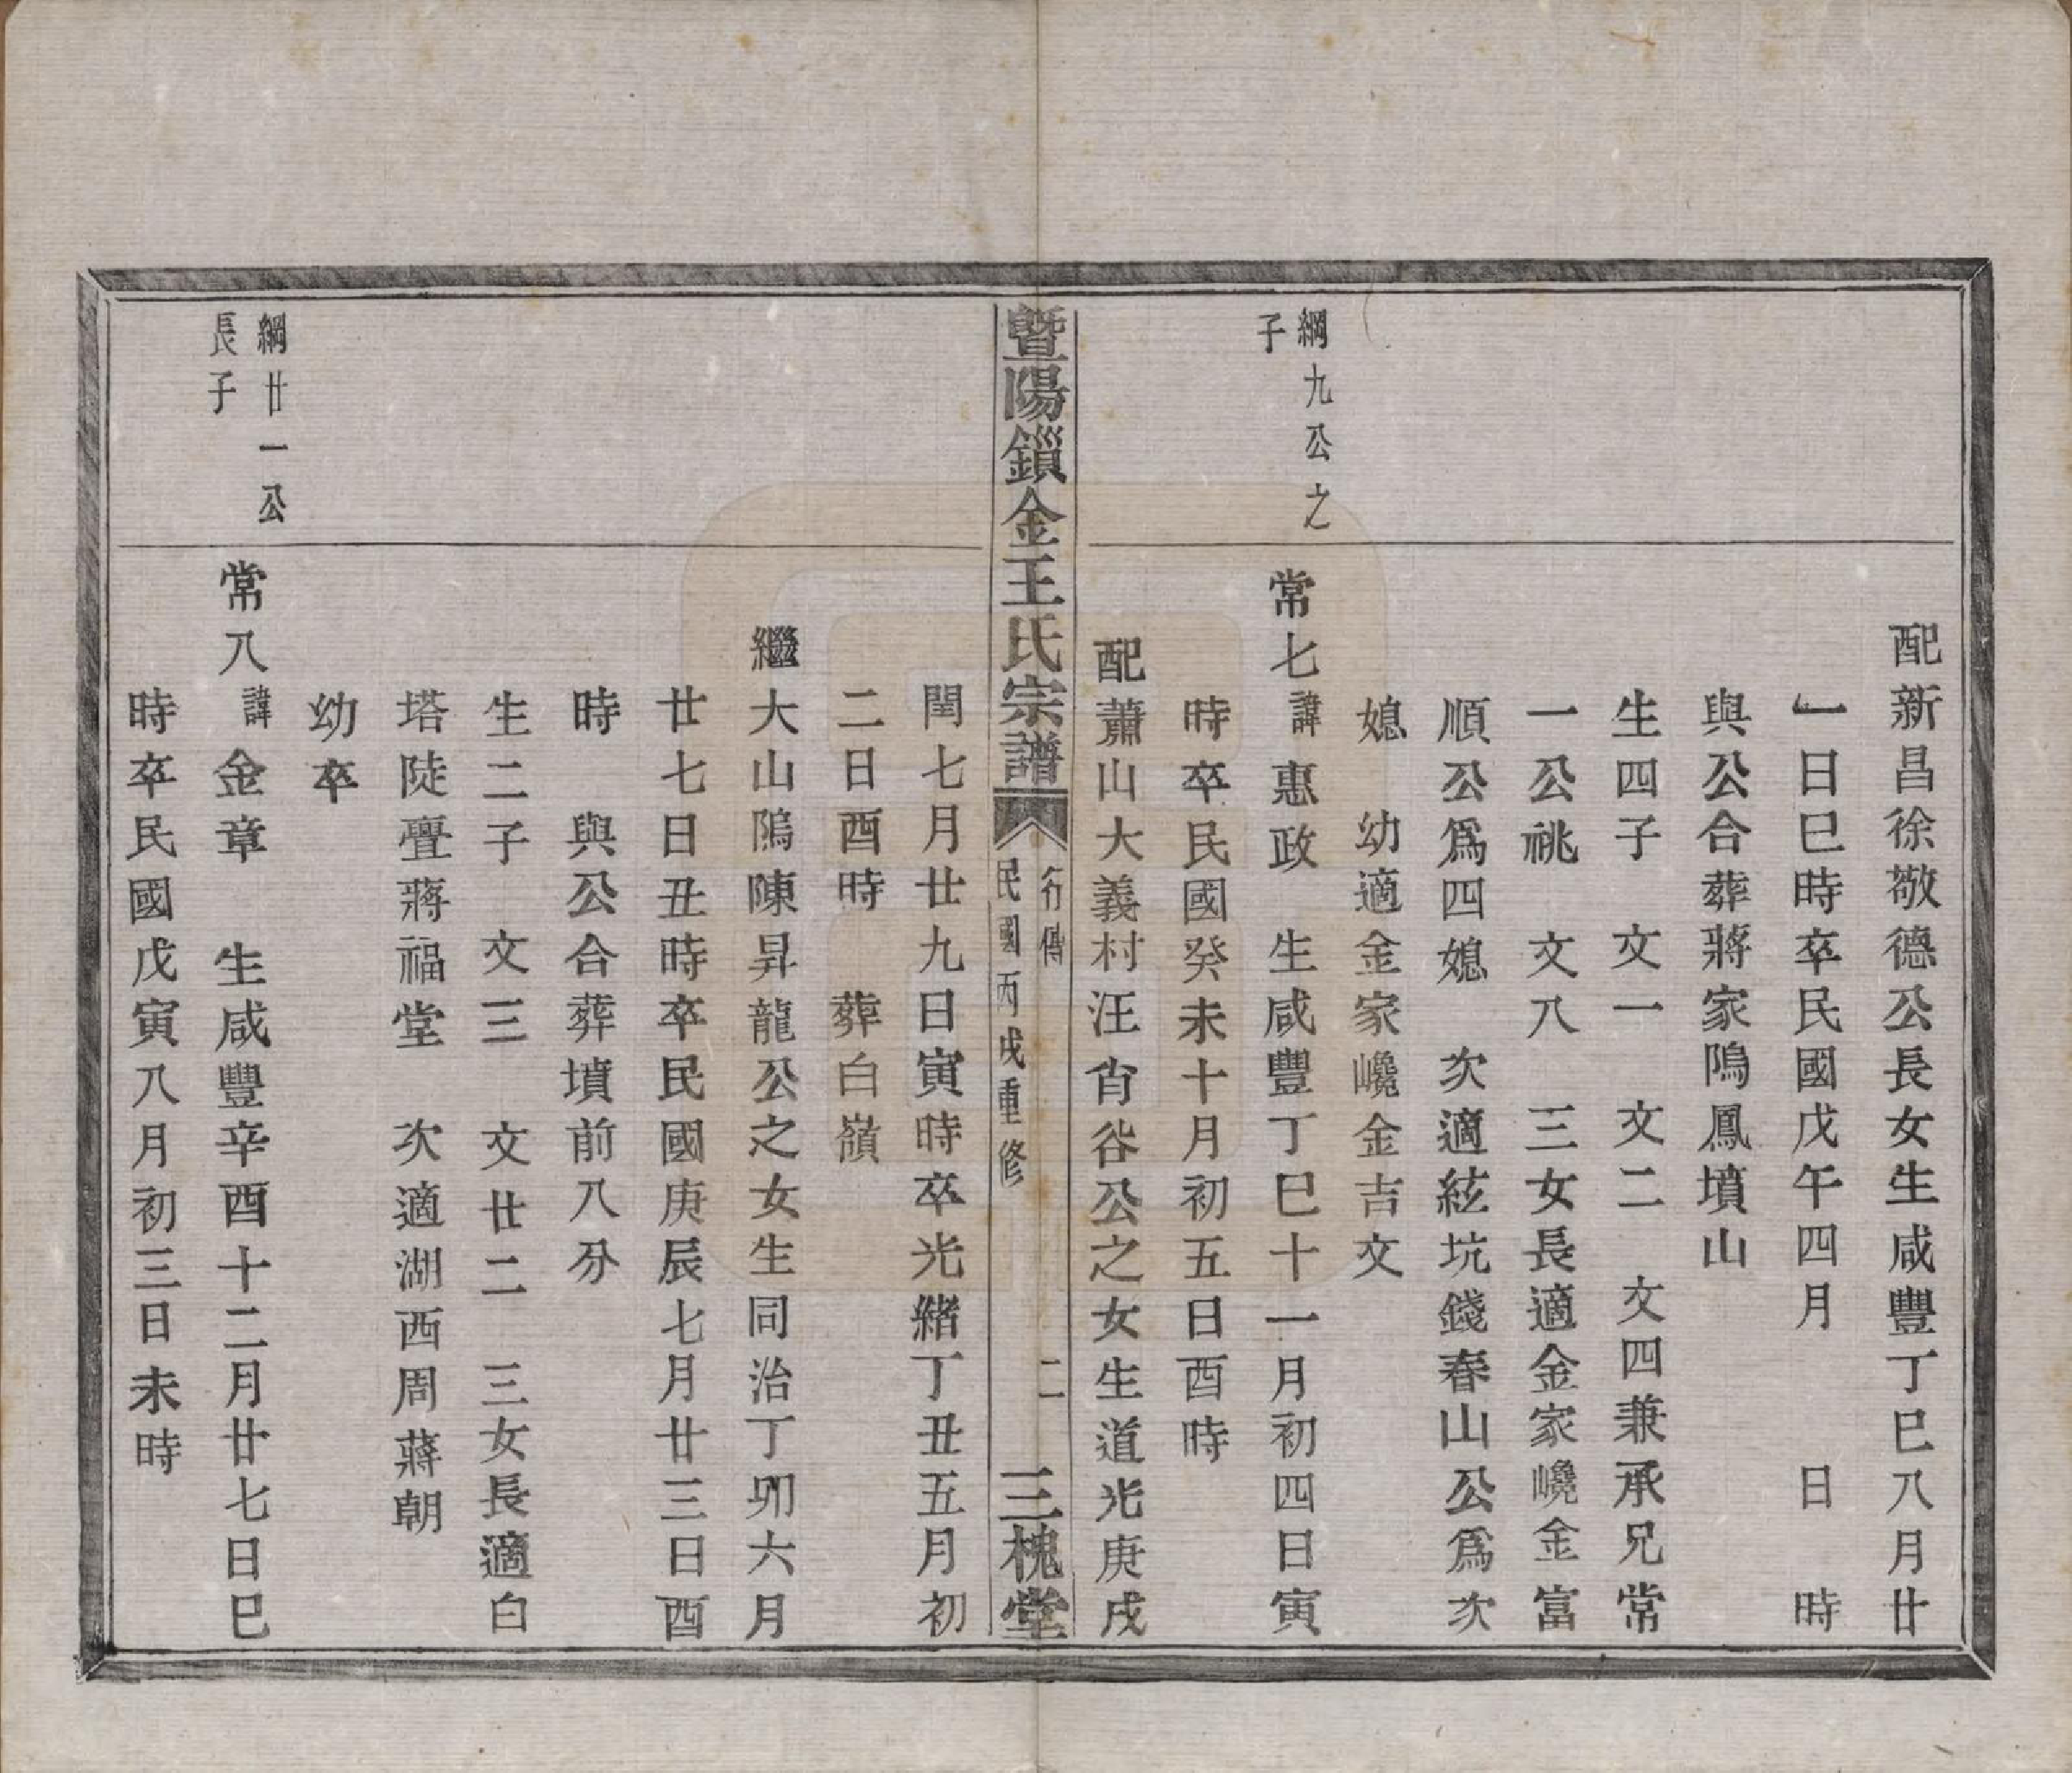 配新昌徐敬德公長女生咸豐丁巳八月廿
一日巳時卒民國戊午四月　日　時
與公合葬蔣家隖鳳墳山
生四子　文一　文二　文四兼承兄常
一公祧　文八　三女長適金家巉金富
順公爲四媳　次適紘坑錢春山公爲次
媳　幼適金家巉金吉文
綱九公之
子
常七諱惠政　生咸豐丁巳十一月初四日寅
時卒民國癸未十月初五日酉時
配蕭山大義村汪肯谷公之女生道光庚戌
暨陽鎻金王氏宗譜
行傳
民國丙戌重修
二
三槐堂
閏七月廿九日寅時卒光緒丁丑五月初
二日酉時　葬白嶺
繼大山隖陳昇龍公之女生同治丁夘六月
廿七日丑時卒民國庚辰七月廿三日酉
時　與公合葬墳前八分
生二子　文三　文廿二　三女長適白
塔陡亹蔣福堂　次適湖西周蔣朝
幼卒
綱廿一公
長子
常八諱金章　生咸豐辛酉十二月廿七日巳
時卒民國戊寅八月初三日未時